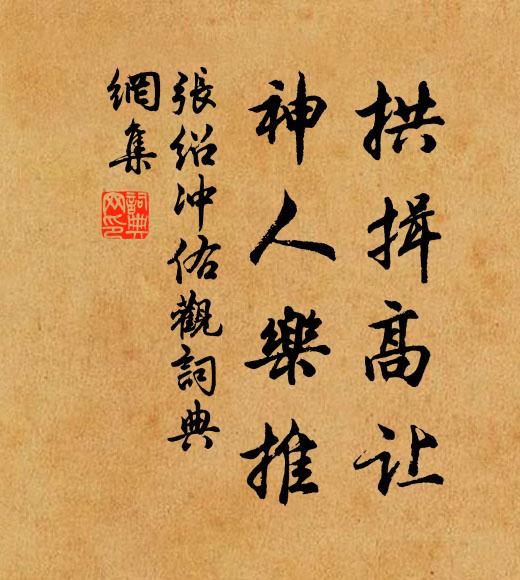 拱揖高让
神人樂推
張紹冲佑觀詞典
網集
詞典